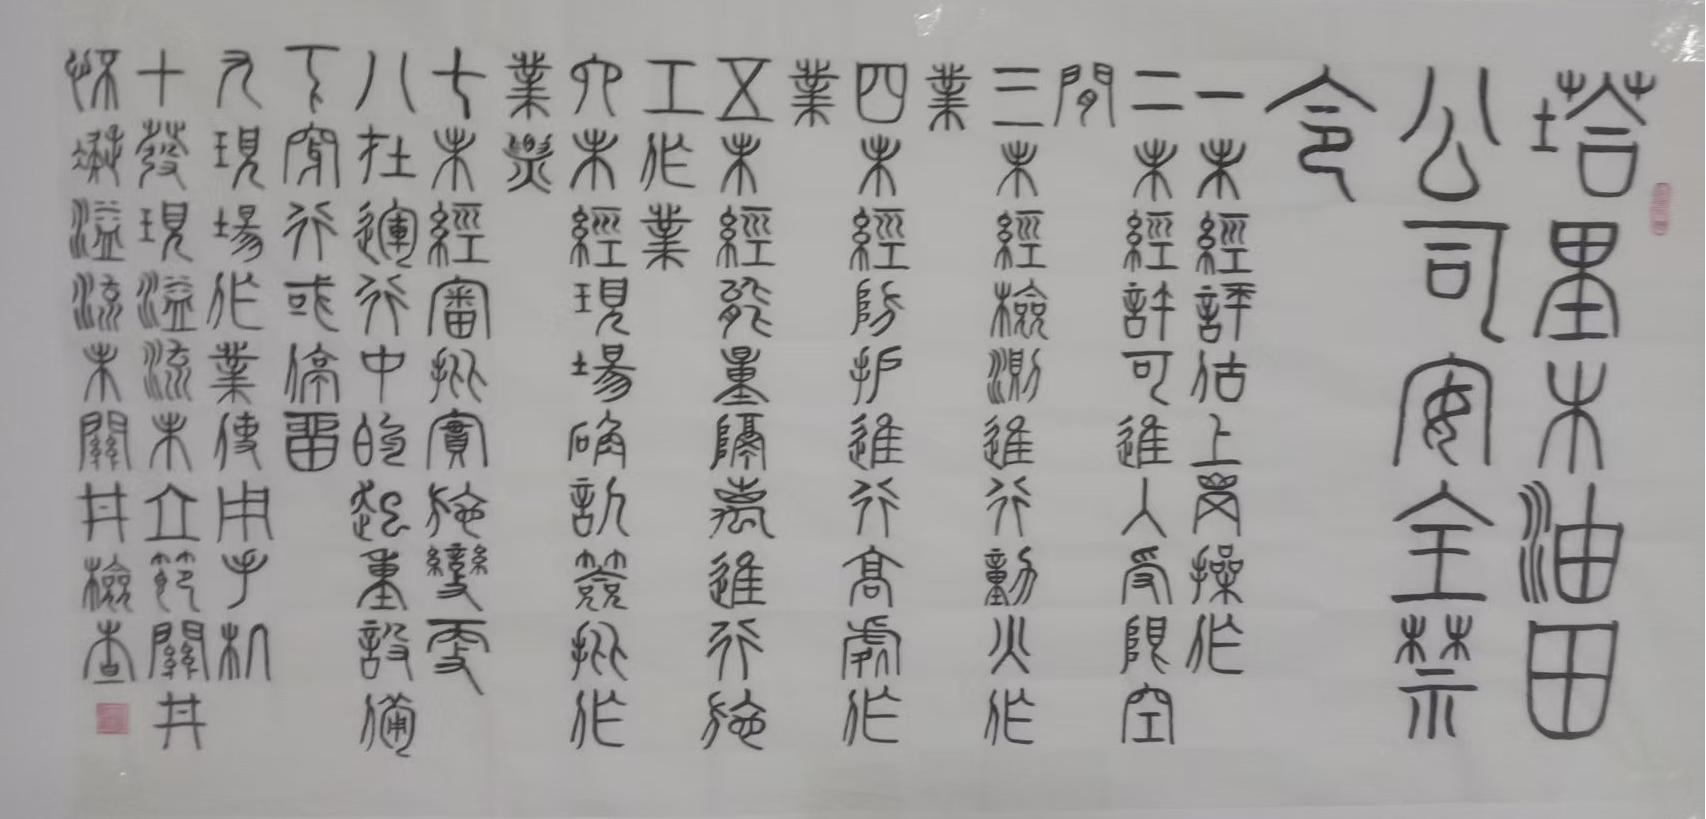 塔里木油田
公司安全禁
令
一未經評估上操作
二未經許可進入受限空
間
三未經檢測進行動火作
業
四未經防护進行高處作
業
五未經能量隔离進行施
工作業
六未經現場确認簽批作
業票
七未經審批實施變更
八在運行中的起重設備
下穿行或停留
九現場作業使用手机
十發現溢流未立關井
怀疑溢流未關井檢查